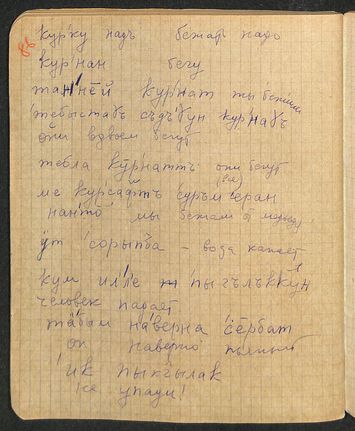 86
кур'ку надъ бежать надо
кур'нан бегу
та'н'нёй кур'нат ты бежишь
тебыстагъ съдъ'қун кур'нағъ
они вдвоем бегут
тебла кӯр'наттъ они бегут
ме курсадтъ 'суръм еран
нан'то' мы бежали от медведя
ӱт 'сорыпба – вода капает
кум ил'ле 'пыгълъккӯн
человек падает
та'бым на'верна 'сёрбат
он наверно пьяный
'ик пыкгылак
не упади!